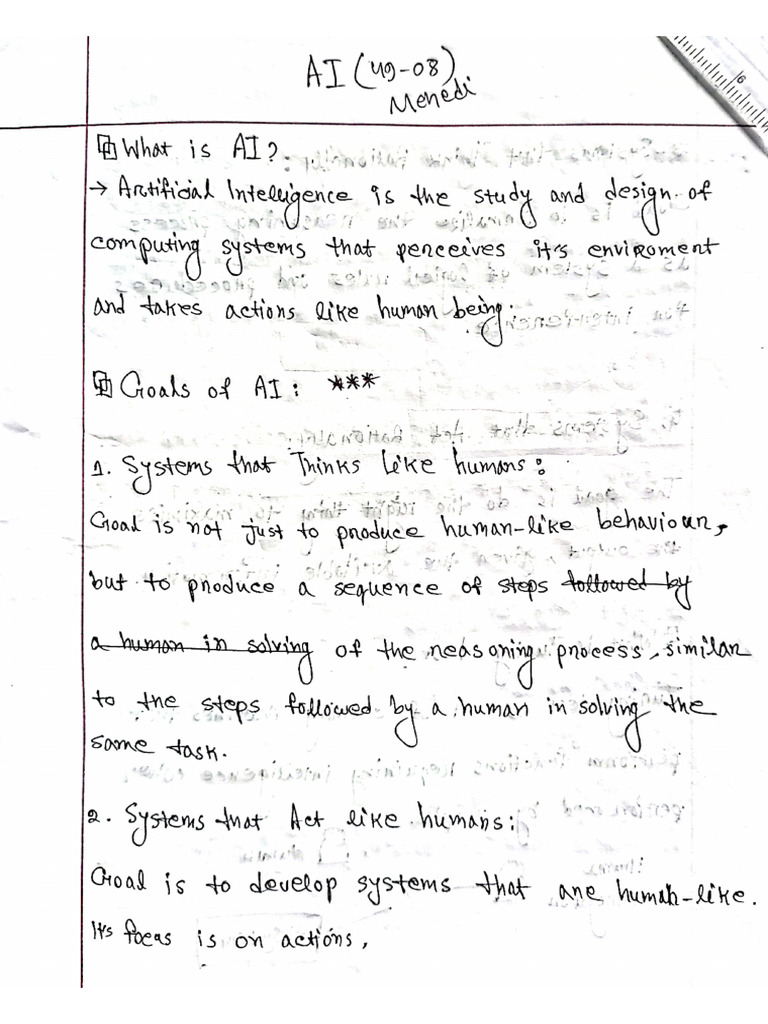 AI (49-08)
Mehedi
What is AI?
→ Artificial Intelligence is the study and design of
computing systems that perceives it's enviroment
and takes actions like human being.
Goals of AI: ***
1. Systems that Thinks Like humans:
Goal is not just to produce human-like behaviour,
but to produce a sequence of steps followed by
a human in solving of the reasoning process, similar
to the steps followed by a human in solving the
same task.
2. Systems that Act like humans:
Goal is to develop systems that are human-like.
It's focus is on actions,
6